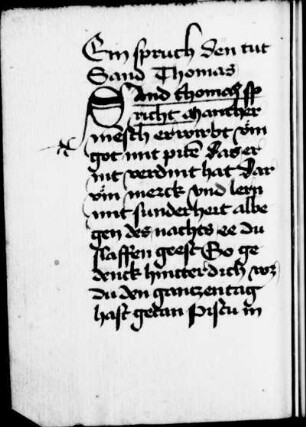 Ein spruch den tut
Sand Thomas
Sand thomas sp
richt Mancher
mesch erwirbt võn
got mit pitte das er
nit verdint hat dar
võn merck vnd lern
mit sunderheit albe
gen des nachts ee du
slaffen geest So ge
denck hintter dich wz
du den gantzen tag
hast getan Pistu in